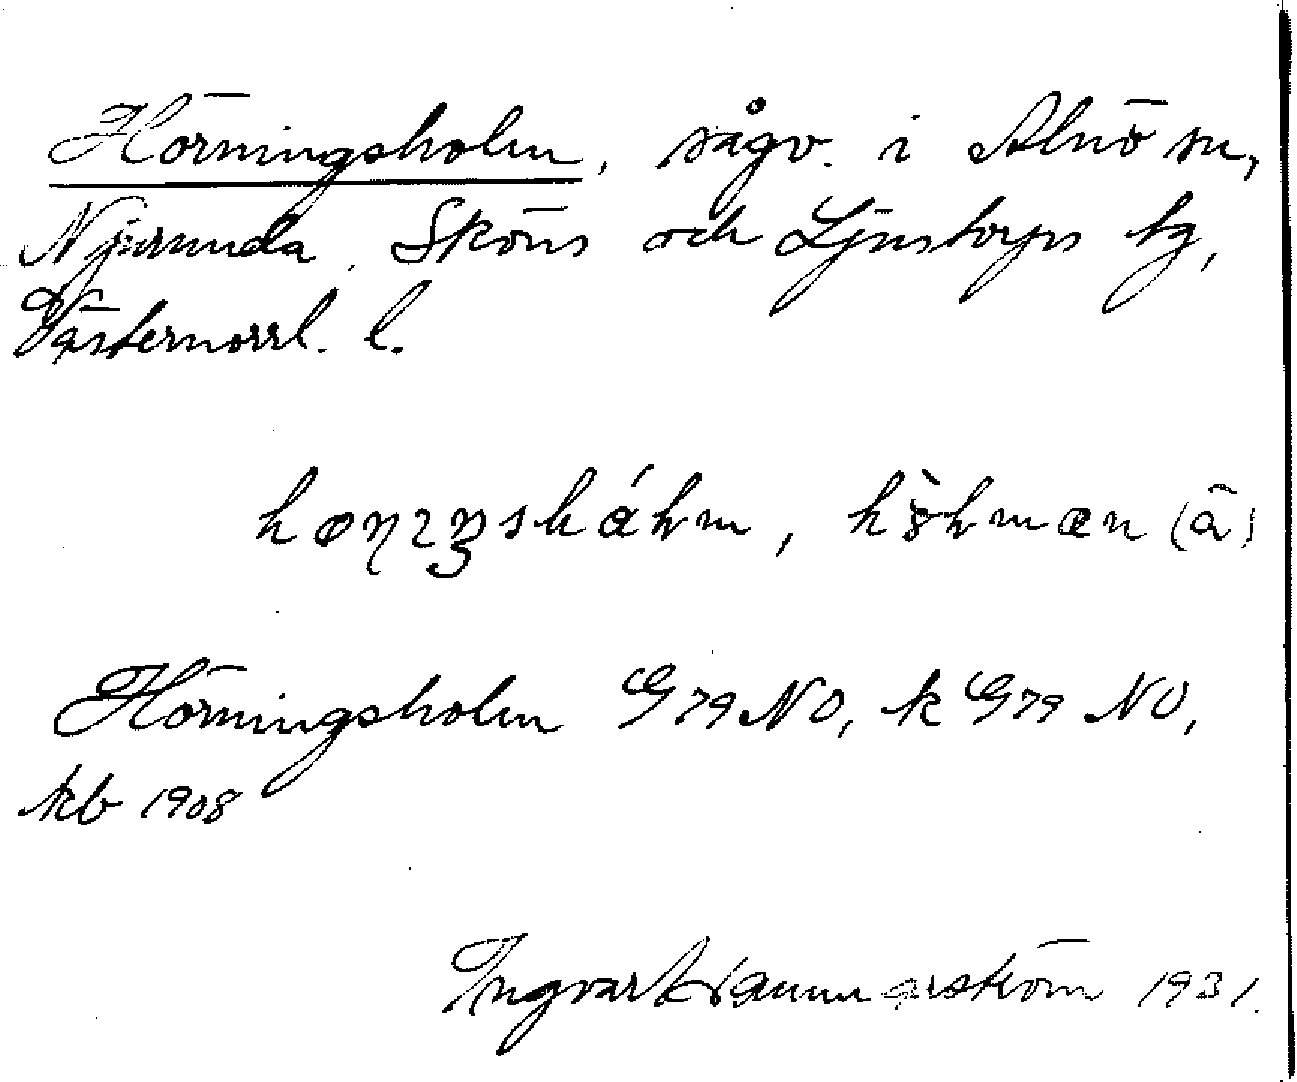 Hörningsholm, sågv. i Alnö sn,
Njurunda, Sköns och Ljustorps tg,
Västernorrl. l.
Hörningsholm G79 NO, k G79 NO,
kb 1908
Ingvar Hammarström 1931.